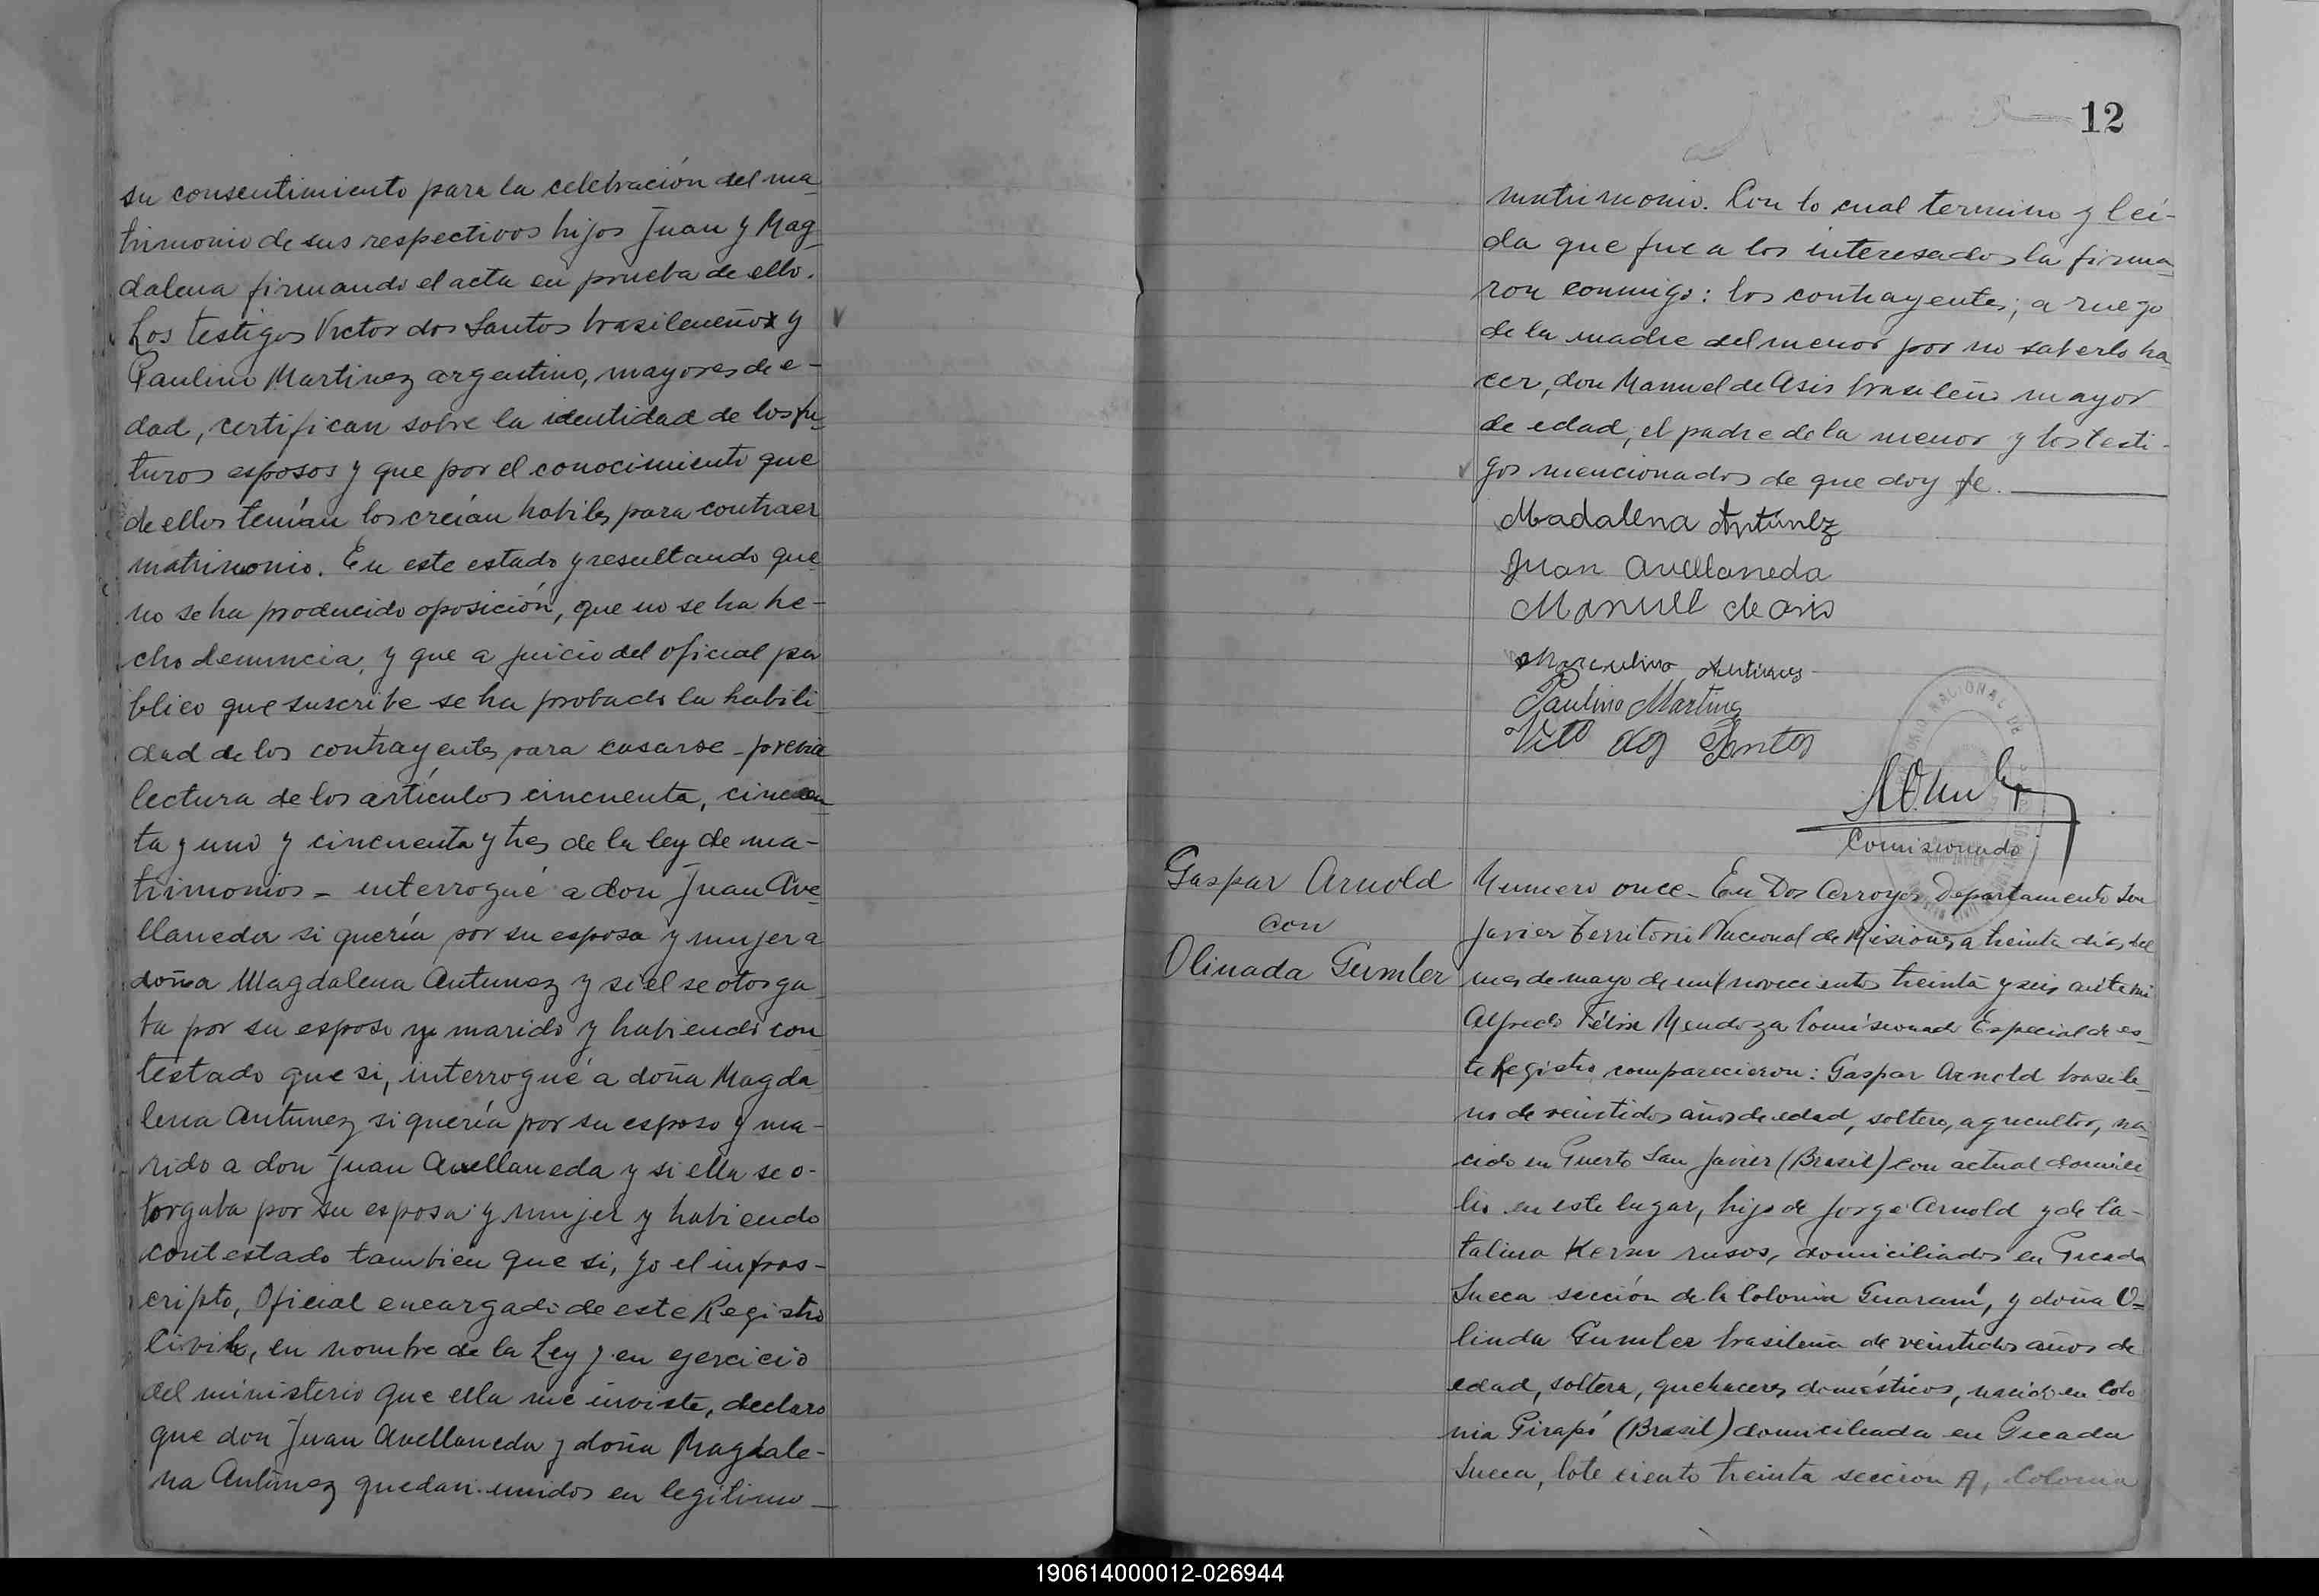 su consentimiento para la celebración del ma-
trimonio de sus respectivos hijos Juan y Mag-
dalena firmando el acta en prueba de ello.
Los testigos Victor dos Santos brasileño y
Paulino Martinez argentino, mayores de e-
dad, certifican sobre la identidad de los fu-
turos esposos y que por el conocimiento que
de ellos tenían los creían habiles para contraer
matrimonio. En este estado y resultando que
no se ha producido oposición, que no se ha he-
cho denuncia, y que a juicio del oficial pú
blico que suscribe se ha probado la habili-
dad de los contrayentes para casarse - previa
lectura de los artículos cincuenta, cincuen-
ta y uno y cincuenta y tres de la ley de ma-
trimonios - interrogué a don Juan Ave-
llaneda si quería por su esposa y mujer a
doña Magdalena Antunez y si el se otorga-
ba por su esposo y marido y habiendo con-
testado que si, interrogué a doña Magda-
lena Antunez si quería por su esposo y ma-
rido a don Juan Avellaneda y si ella se o-
torgaba por su esposa y mujer y habiendo
contestado tambien que si, yo el infras-
cripto, Oficial encargado de este Registro
Civil, en nombre de la Ley y en ejercicio
del ministerio que ella me inviste, declaro
que don Juan Avellaneda y doña Magdale-
na Antúnez quedan unidos en legitimo
12
matrimonio. Con lo cual termino y leí-
da que fue a los interesados la firma-
ron conmigo: los contrayentes; a ruego
de la madre del menor por no saberlo ha
cer, don Manuel de Asis brasileño mayor
de edad, el padre de la menor y los testi-
gos mencionados de que doy fe.
Madalena Antúnez
Juan Avellaneda
Manuel de asis
Marculino Antunes
Paulino Martinez
dos Santos
Comisionado
Gaspar Arnold
con
Olinada Gumler
Numero once - En Dos Arroyos Departamento San
Javier Territorio Nacional de Misiones a treinta dias del
mes de mayo de mil novecientos treinta y seis ante mi
Alfredo Félix Mendoza Comisionado Especial de es-
te Registro comparecieron: Gaspar Arnold brasile-
ño de veintidos años de edad, soltero, agricultor, na-
cido en Puerto San Javier (Brasil) con actual domici
lio en este lugar, hijo de Jorge Arnold y de Ca-
talina Kern rusos, domiciliados en Picada
Sueca sección de la Colonia Guaraní, y doña O-
linda Gumler brasileña de veintidos años de
edad, soltera, quehaceres domésticos, nacida en Colo
nia Pirapó (Brasil) domiciliada en Picada
Sueca, lote ciento treinta seccion A, Colonia
190614000012-026944